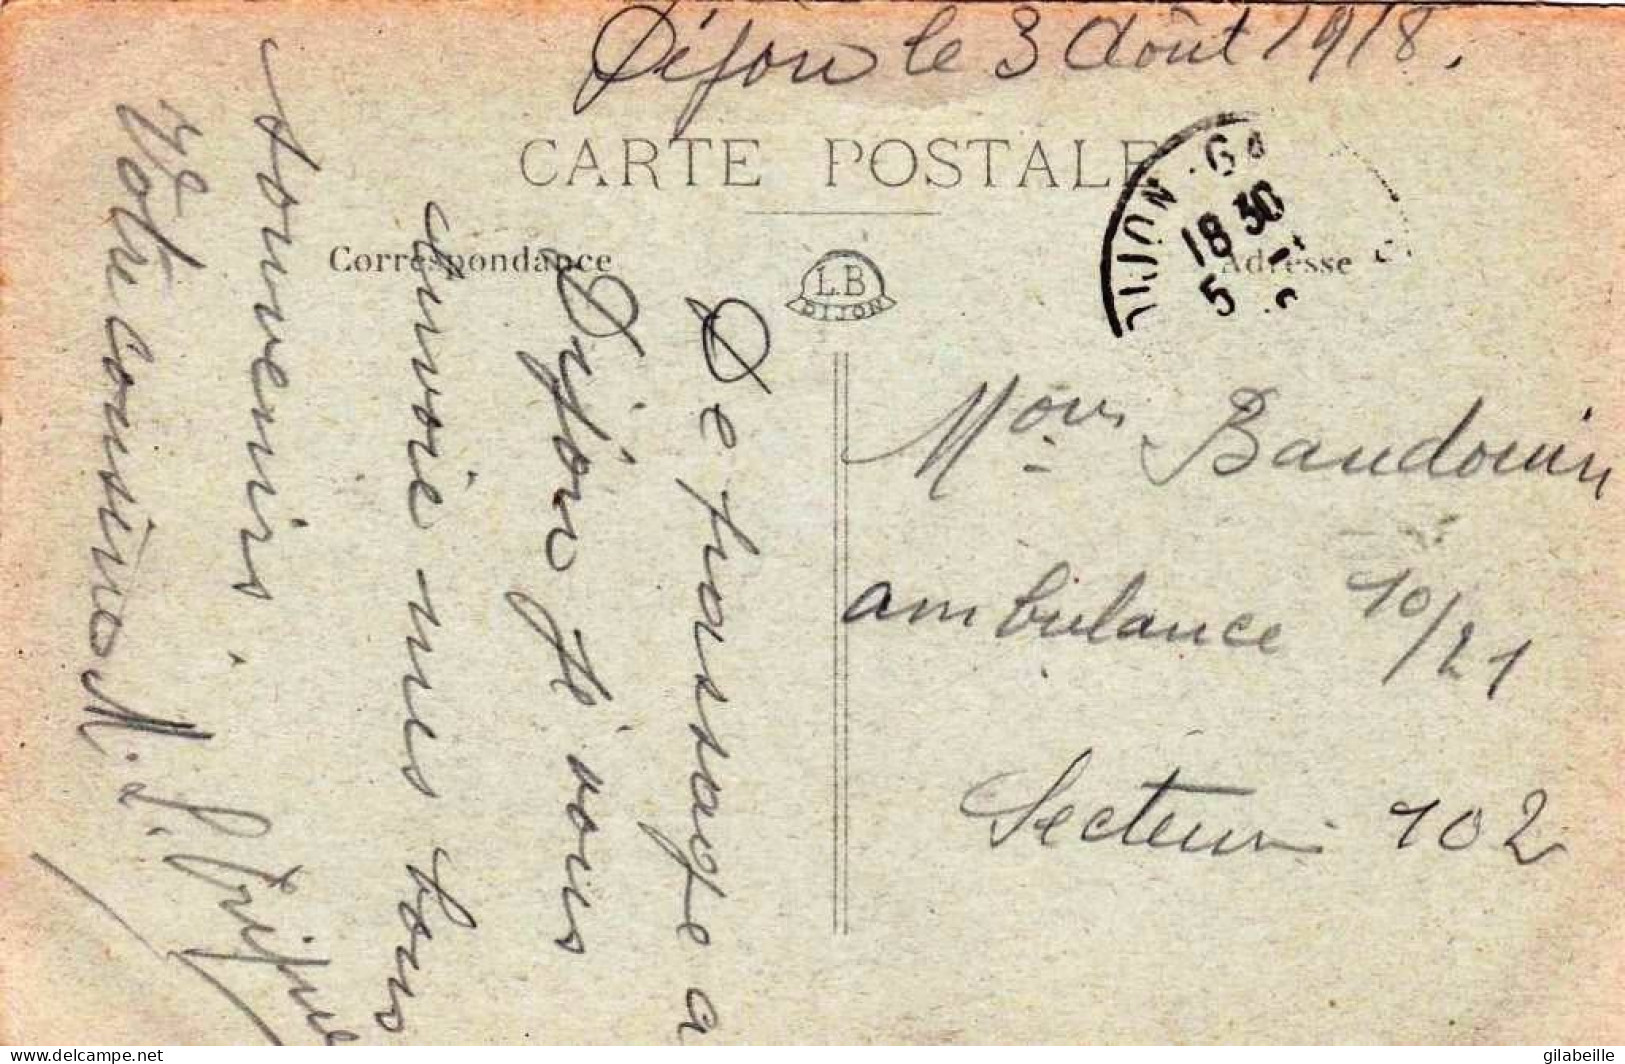 Dijon le 3 Août 1918.
CARTE POSTALE
Correspondance
Adresse
L.B
DIJON
DIJON - GA
18 30
5
De passage a
Dijon je vous
envoie mes bons
souvenirs.
Votre cousine
M. L.
Mour Baudouin
ambulance 10/21
Secteur 102
gilabeille
delcampe.net